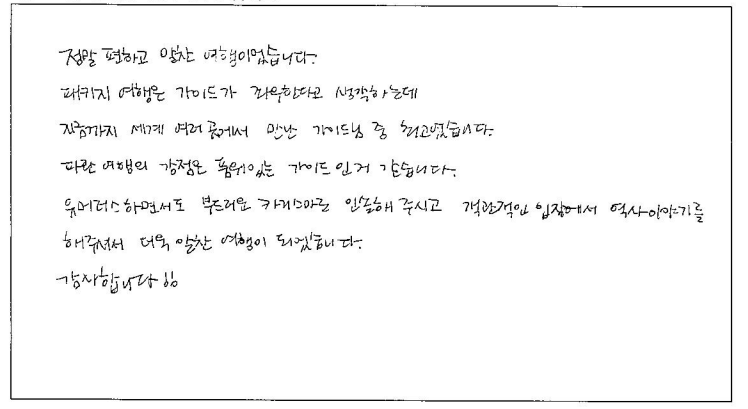 정말 편하고 알찬 여행이었습니다.
패키지 여행은 가이드가 좌우한다고 생각하는데
지금까지 세계 여러곳에서 만난 가이드님 중 최고였습니다.
파란 여행의 강점은 품위있는 가이드 인거 같습니다.
유머러스하면서도 부드러운 카리스마로 인솔해 주시고 객관적인 입장에서 역사이야기를
해주셔서 더욱 알찬 여행이 되었습니다.
감사합니다